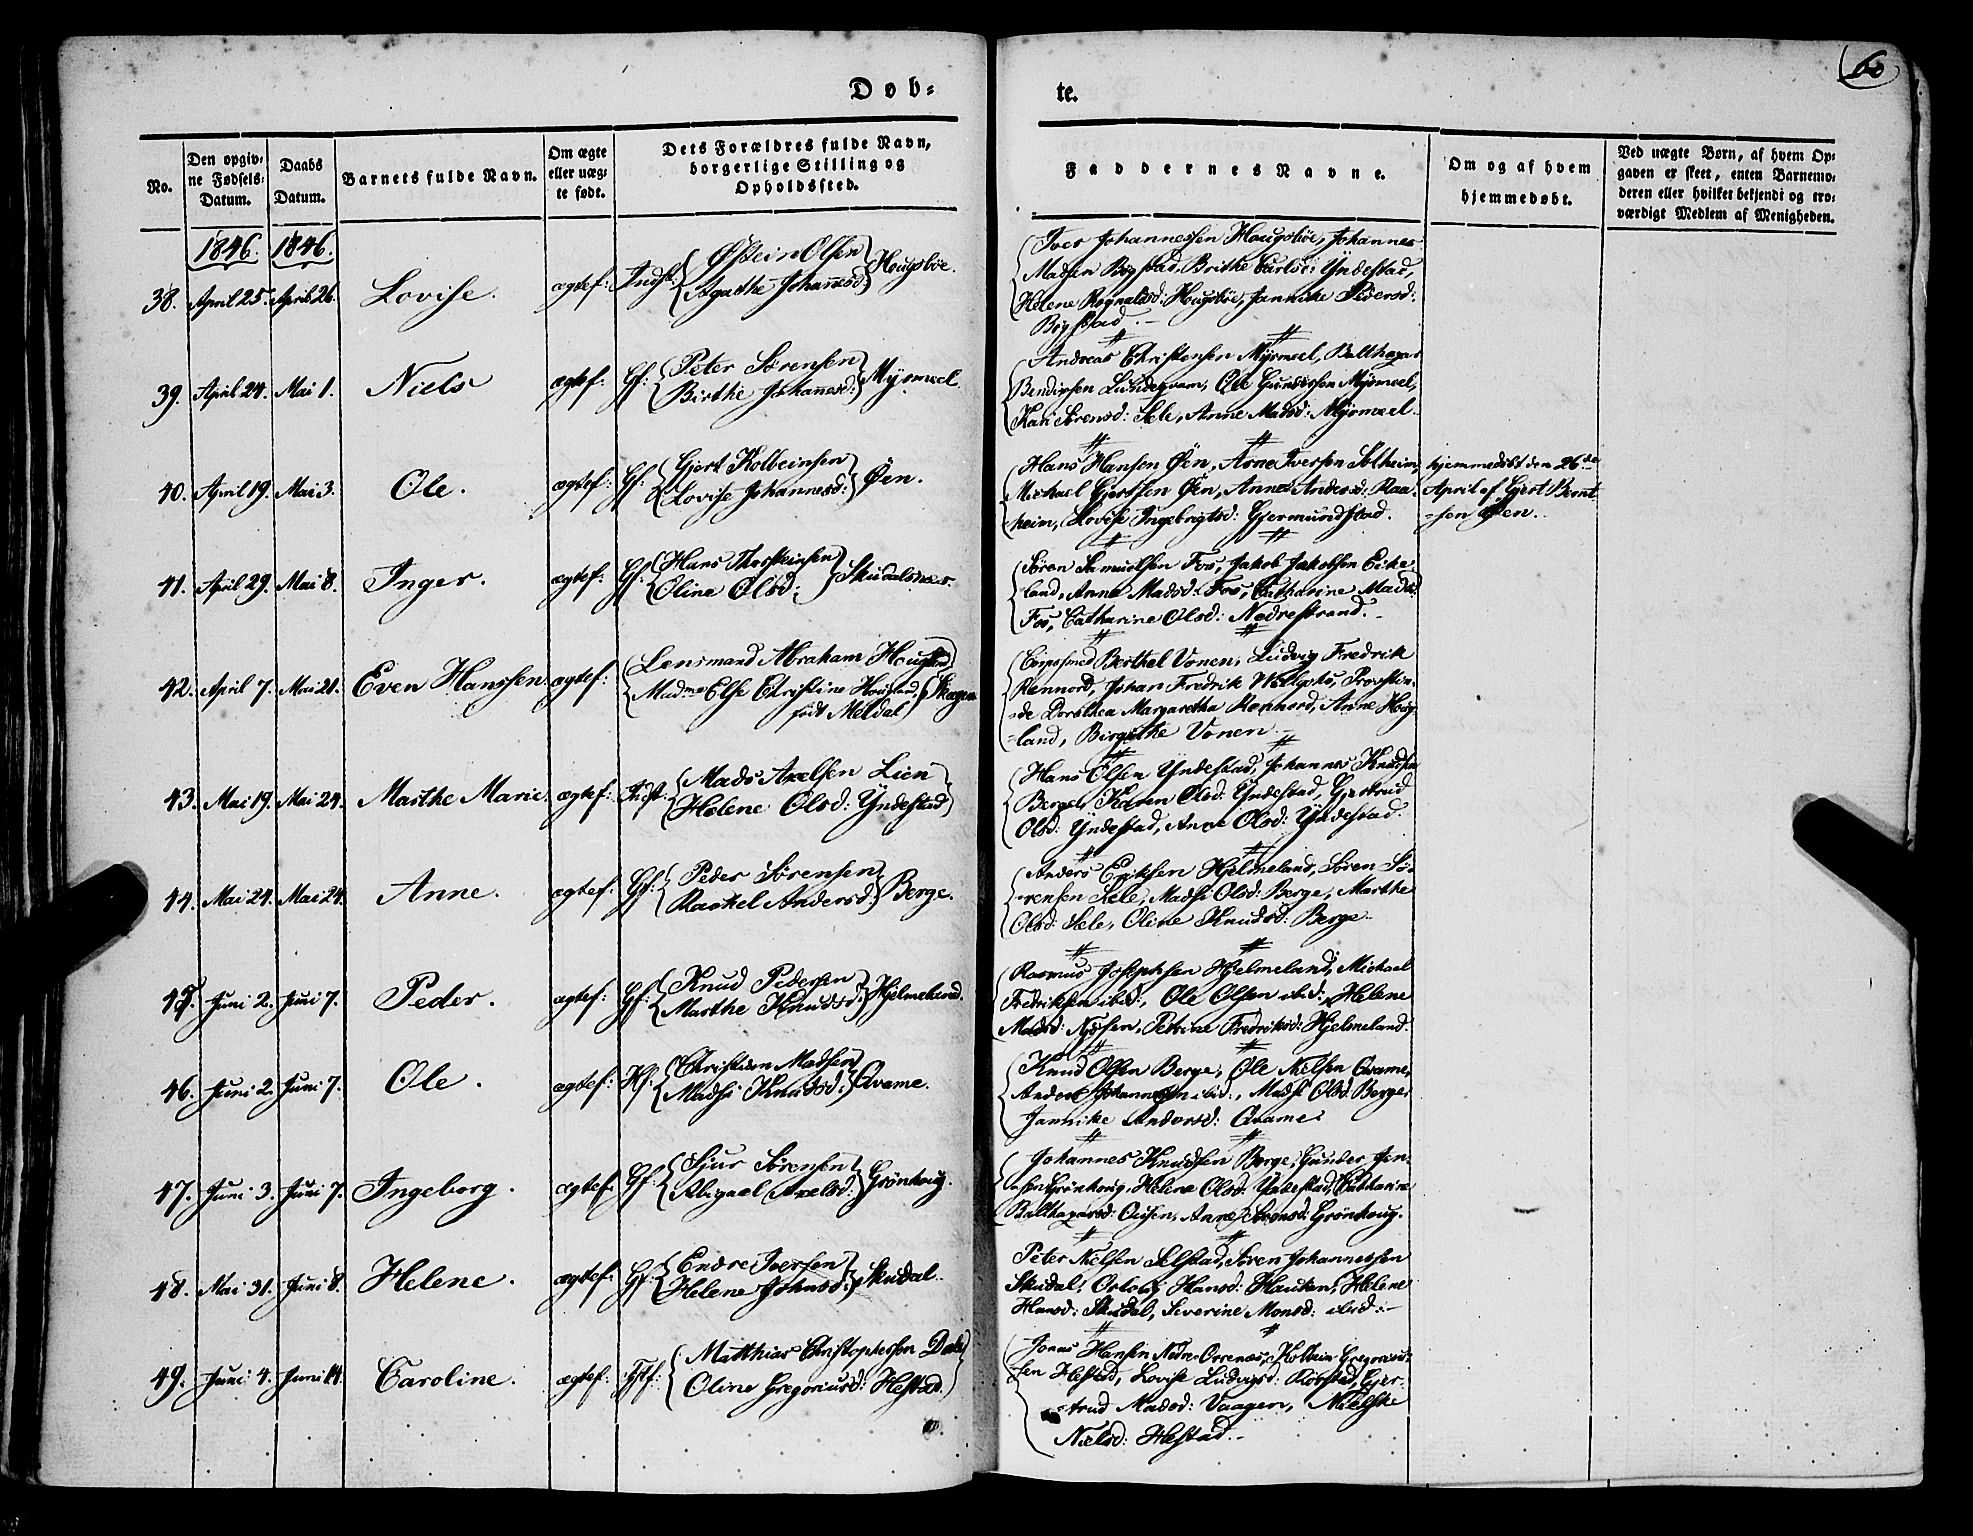 60
Døb-
te.
No.
Den opgiv-
ne Fødsels-
Datum.
Daabs
Datum.
Barnets fulde Navn.
Om ægte
eller uæg-
te født.
Dets Forældres fulde Navn,
borgerlige Stilling og
Opholdssted.
Faddernes Navne.
Om og af hvem
hjemmedøbt.
Ved uægte Børn, af hvem Op-
gaven er skeet, enten Barnemo-
deren eller hvilket bekjendt og tro-
værdigt Medlem af Menigheden.
1846. 1846.
38. April 25. April 26. Lovise. ægtef: Indst: Østein Olsen
Agathe Johannesd: Hougsbøe.
Iver Johannessen Hougsbøe, Johannes
Madsen Bogstad, Birthe Carlsd: Yndestad,
Helene Rognaldsd: Hougsbøe, Jannicke Pedersd:
Bogstad.
39. April 24. Mai 1. Niels ægtef: Gf: Peter Sørensen
Birthe Johannesd: Myrmeel.
Andreas Christensen Myrmeel, Balthazar
Bendixsen Lundeqvam, Ole Gundersen Myrmeel,
Kari Sørensd: Sele, Anne Madsd: Myrmeel.
40. April 19. Mai 3. Ole. ægtef: Gf: Gjert Kolbeinsen
Lovise Johannesd: Øen.
Hans Hansen Øen, Arne Iversen Solheim,
Michael Gjertsen Øen, Anne Andersd: Raa-
heim, Lovise Ingebrigtsd: Gjermundstad.
hjemmedøbt den 26de
April af Gjert Bernt
-sen Øen.
41. April 29. Mai 8. Inger. ægtef: Gf: Hans Thorsteinsen
Oline Olsd: Skudalsnæs.
Søren Samuelsen Fos, Jakob Jakobsen Eike-
land, Anne Madsd: Fos, Catharine Madsd:
Fos, Catharine Olsd: Nedrestrand.
42. April 7. Mai 21. Even Hanssen. ægtef: Lensmand Abraham Hougland
Madme Else Christine Hougland, Skagen
født Meldal
Berthel Vonen, Ludvig Fredrik
Rennord, Johan Fredrik
-de Dorothea Margaretha Rennord, Anne Houg-
land, Birgithe Vonen.
43. Mai 19. Mai 24. Marthe Marie. ægtef: Indst: Mads Axelsen Lien
Helene Olsd: Yndestad
Hans Olsen Yndestad, Johannes Knudsen
Berge, Karen Olsd: Yndestad, Gjertrud
Olsd: Yndestad, Anne Olsd: Yndestad.
44. Mai 24. Mai 24. Anne. ægtef: Gf: Peder Sørensen
Rachel Andersd: Berge.
Anders Eriksen Hjelmeland, Søren Sø-
rensen Sele, Madsi Olsd: Berge, Marthe
Olsd: Sele, Oline Knudsd: Berge.
45. Juni 2. Juni 7. Peder. ægtef: Gf: Knud Pedersen
Marthe Knudsd: Hjelmeland.
Rasmus Josephsen Hjelmeland, Michael
Fredriksen ibid:, Ole Olsen ibid: Helene
Madsd: Nøssen, Petrine Fredriksd: Hjelmeland.
46. Juni 2. Juni 7. Ole. ægtef: Hf: Christian Madsen
Madsi Knudsd: Qvame.
Knud Olsen Berge, Ole Nielsen Qvame,
Anders Johannesen ibid:, Madsi Olsd: Berge,
Jannike Andersd: Qvame.
47. Juni 3. Juni 7. Ingeborg. ægtef: Gf: Sjur Sørensen
Abigael Axelsd: Grønhoug.
Johannes Knudsen Berge, Gunder Jen-
sen Grønhoug, Helene Olsd: Yndestad, Catharine
Balthazarsd: Anne Sørensd: Grønhoug.
48. Mai 31. Juni 8. Helene. ægtef: Gf: Endre Iversen
Helene Johnsd: Skudal.
Peter Nielsen Selstad, Søren Johannessen
Skudal, Hansd: Helene
Hansd: Skudal, Severine Monsd: ibid:
49. Juni 4. Juni 14. Caroline. ægtef: Matthias Christophersen Dale
Oline Gregoriusd: Hestad.
Jonas Hansen Nedre Kolbein Gregorius-
sen Hestad, Lovise Ludvigsd: Gjer-
trud Madsd: Vaagen,
Nielsd: Hestad.